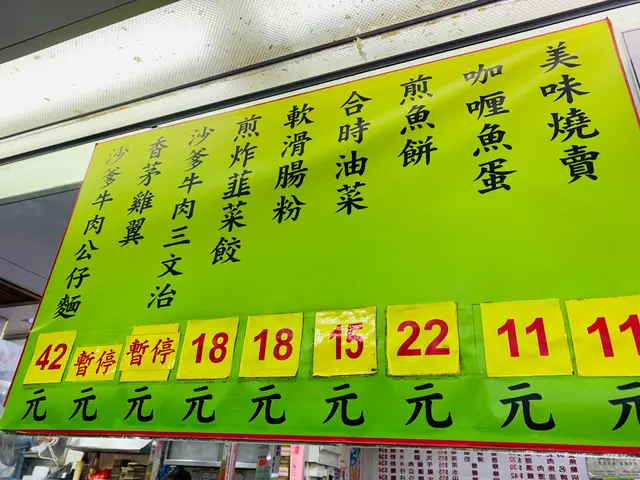 美味燒賣
11
元
咖喱魚蛋
11
元
煎魚餅
22
元
合時油菜
15
元
軟滑腸粉
18
元
煎炸韮菜餃
18
元
沙爹牛肉三文治
暫停
元
香茅雞翼
暫停
元
沙爹牛肉公仔麵
42
元